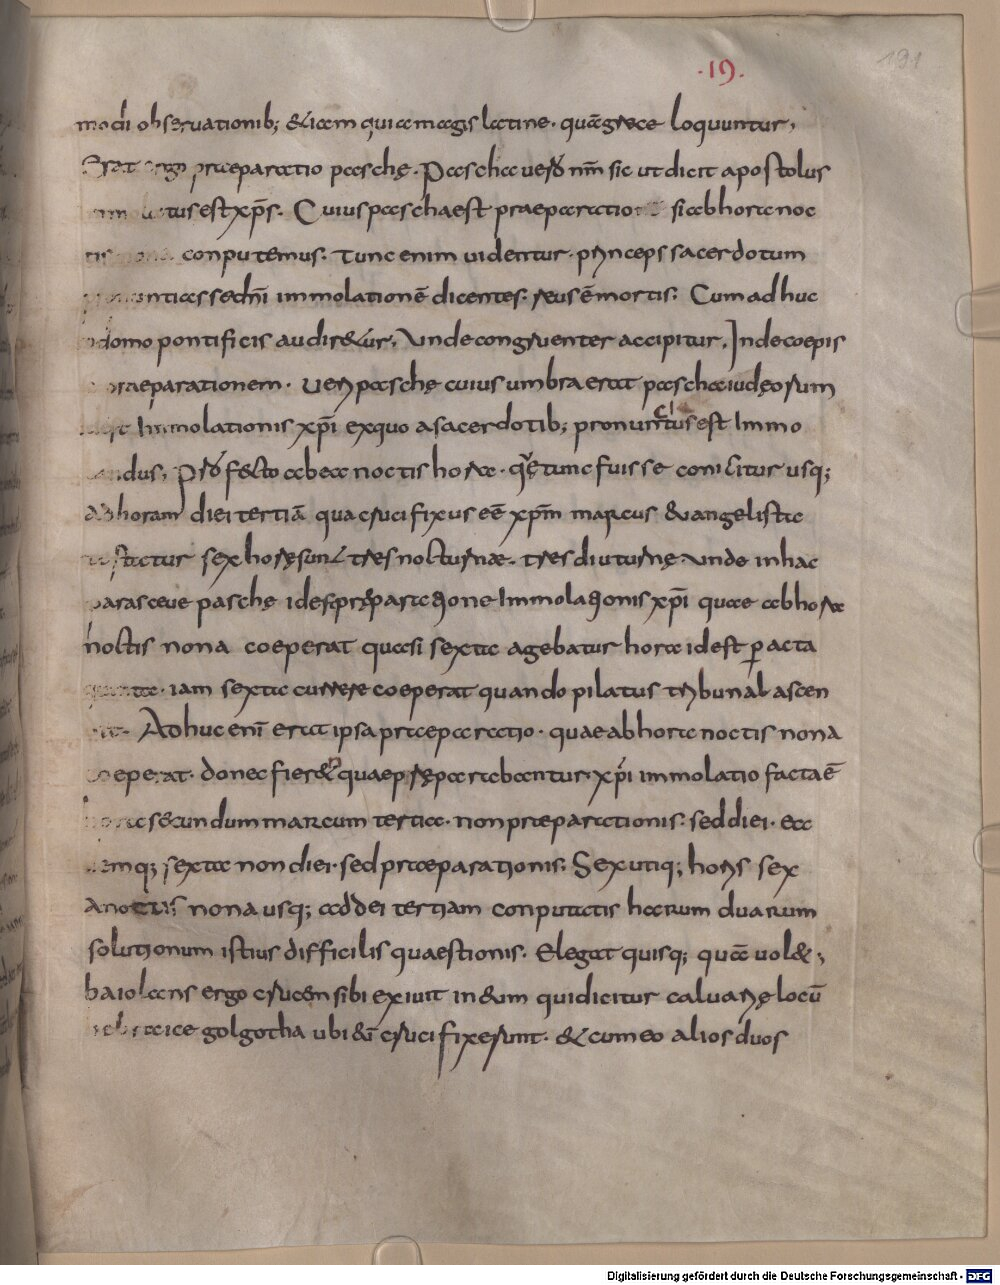 ·19·
191
modi observationib; & idem quidam magis latine quā grece loquuntur,
Erat ergo praeparatio paschę. Pascha vero nrm sic ut dicit apostolus
immolatus est xps. Cuius paschae st praeparatio si ab hora noc
tis nona conputemus. Tunc enim videntur principes sacerdotum
pronuntias se dnī immolationē dicentes. reus ē mortis. Cum adhuc
domo pontificis audir&ur, Unde congruenter accipitur, Inde coepis
praeparationem. Veri paschę cuius umbra erat pascha iudęorum
immolationis xpī ex quo a sacerdotib; pronuntiatus est Immo
landus, Profecto ab ea noctis hora. quę tunc fuisse conicitur usq;
ad horam diei tertiā qua crucifixus eē xpm marcus euangelista
testatur sex horę sunt tres nocturnae. tres diuturnę Unde in hac
parasceue paschę id est pręparatione Immolationis xpī quae ab hora
noctis nona coeperat quasi sexta agebatur hora id est pacta
quinta. iam sexta currere coeperat quando pilatus tribunal ascen
Adhuc enī erat ipsa praeparatio. quae ab hora noctis nona
coeperat. donec fier& quae pręparabantur. xpī immolatio facta ē
hora secundum marcum tertia. non praeparationis. sed diei. ea
demq; sexta non diei. sed praeparationis. Sex utiq; horis sex
a noctis nona usq; ad diei tertiam conputatis harum duarum
solutionum istius difficilis quaestionis. Elegat quisq; quā uol&;
baiolans ergo crucem sibi exiuit in eum qui dicitur calvarię locū
hebraice golgotha ubi eū crucifixerunt. & cum eo alios duos
Digitalisierung gefördert durch die Deutsche Forschungsgemeinschaft - DFG